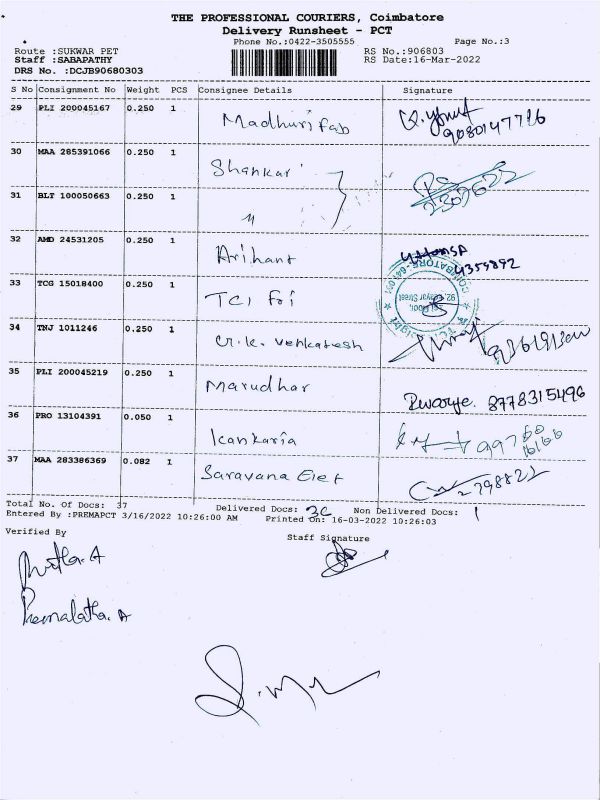 THE PROFESSIONAL COURIERS, Coimbatore
Delivery Runsheet - PCT
Phone No.:0422-3505555 Page No.:3
Route :SUKWAR PET RS No.:906803
Staff :SABAPATHY RS Date:16-Mar-2022
DRS No. :DCJB90680303
S No Consignment No Weight PCS Consignee Details Signature
29 PLI 200045167 0.250 1 Madhuri fab 9080147786
30 MAA 285391066 0.250 1 Shankar
31 BLT 100050663 0.250 1 "
32 AMD 24531205 0.250 1 Arihant 4359892
33 TCG 15018400 0.250 1 TCI Fri
34 TNJ 1011246 0.250 1 G.K. Venkatesh
35 PLI 200045219 0.250 1 Marudhar 8778315496
36 PRO 13104391 0.050 1 Kankaria
37 MAA 283386369 0.082 1 Saravana Elet
Total No. Of Docs: 37 Delivered Docs: Non Delivered Docs: 1
Entered By :PREMAPCT 3/16/2022 10:26:00 AM Printed On: 16-03-2022 10:26:03
Verified By Staff Signature
Premalatha. A